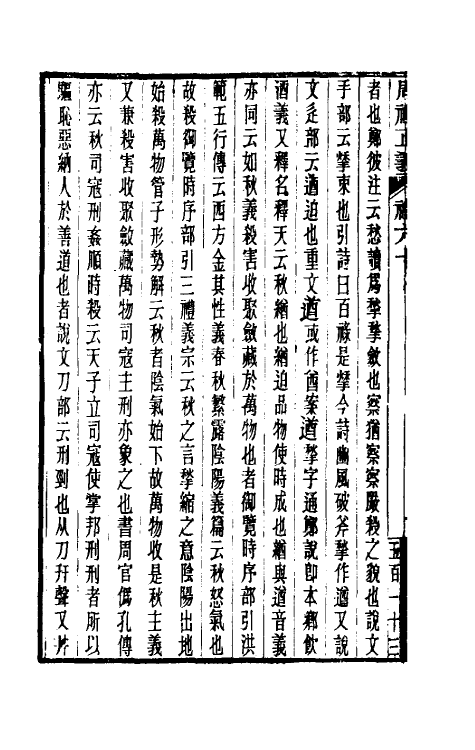 周禮正義 禮六十 五百一十三
者也鄭彼注云愁讀爲揫揫斂也察猶察察嚴殺之貌也說文
手部云揫束也引詩曰百祿是揫今詩豳風破斧揫作遒又說
文辵部云遒迫也重文遒或作酋案遒揫字通鄭說卽本鄉飲
酒義又釋名釋天云秋緧也緧迫品物使時成也緧與遒音義
亦同云如秋義殺害收聚斂藏於萬物也者御覽時序部引洪
範五行傳云西方金其性義春秋繁露陰陽義篇云秋怒氣也
故殺御覽時序部引三禮義宗云秋之言揫縮之意陰陽出地
始殺萬物管子形勢解云秋者陰氣始下故萬物收是秋主義
又兼殺害收聚斂藏萬物司寇主刑亦象之也書周官僞孔傳
亦云秋司寇刑姦順時殺云天子立司寇使掌邦刑刑者所以
驅恥惡納人於善道也者說文刀部云刑剄也从刀幵聲又井